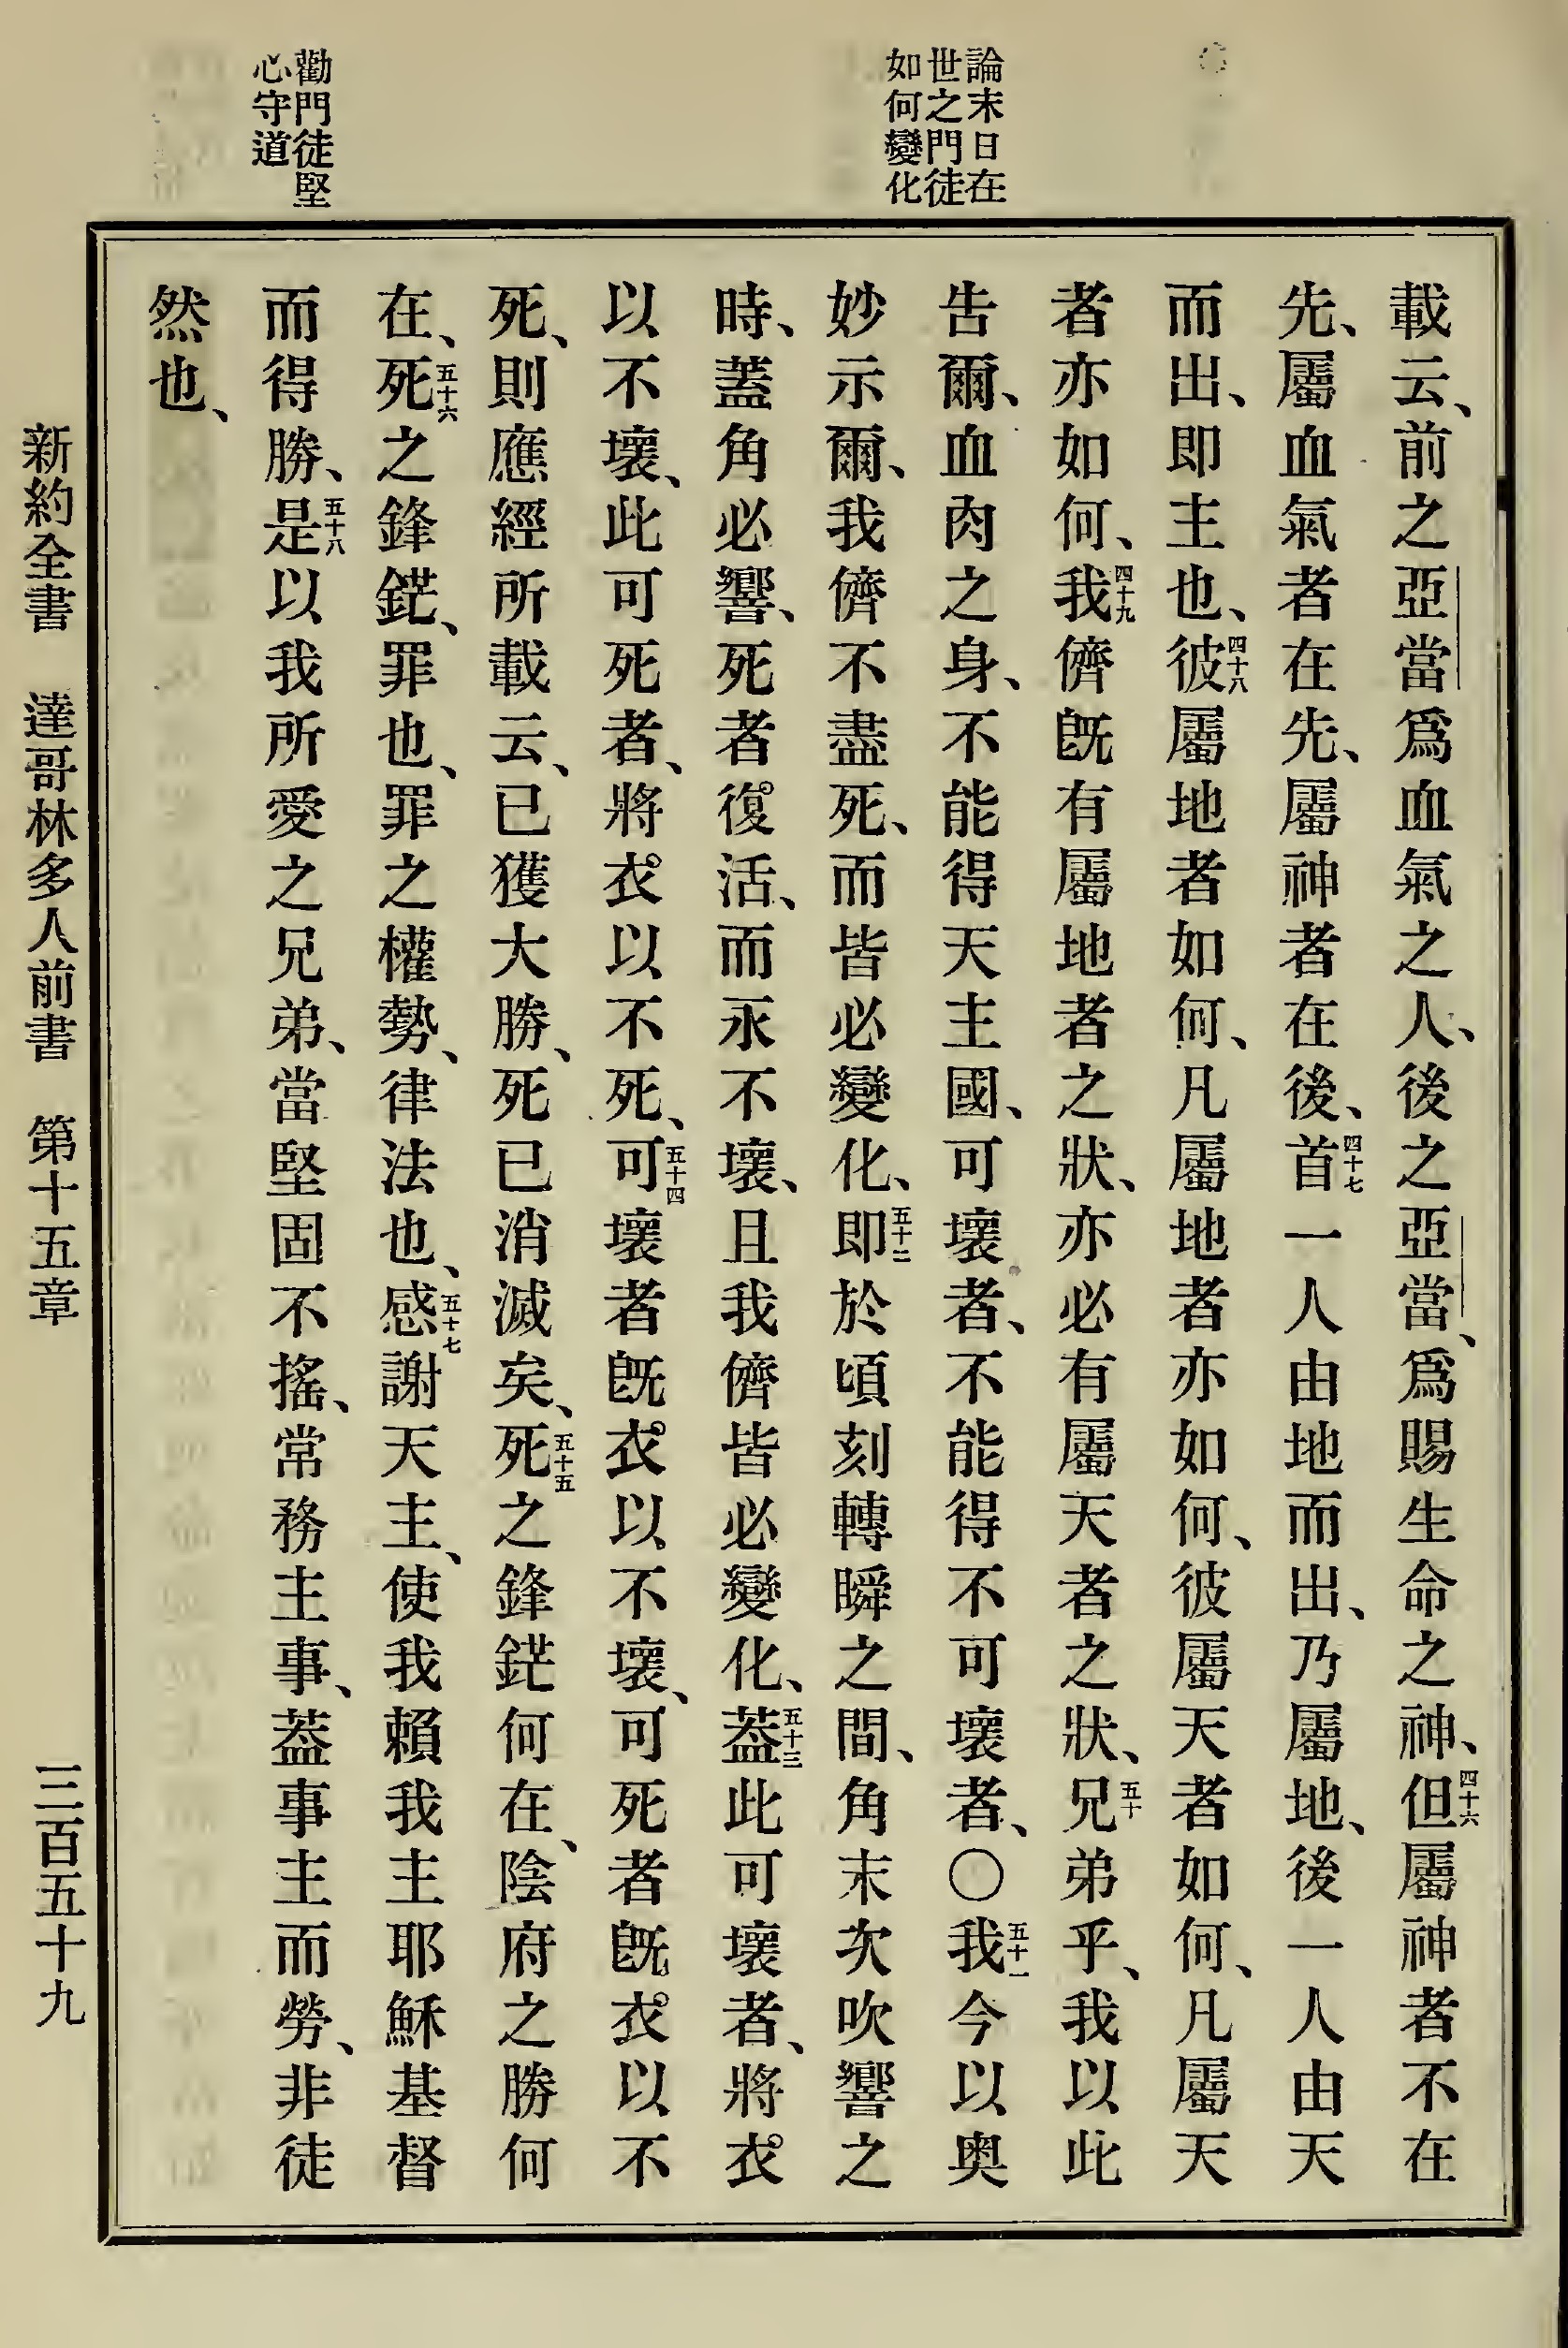 論末日在
世之門徒
如何變化
勸門徒堅
心守道
載云、前之亞當爲血氣之人、後之亞當、爲賜生命之神、四十六但屬神者不在
先、屬血氣者在先、屬神者在後、四十七首一人由地而出、乃屬地、後一人由天
而出、即主也、四十八彼屬地者如何、凡屬地者亦如何、彼屬天者如何、凡屬天
者亦如何、四十九我儕旣有屬地者之狀、亦必有屬天者之狀、五十兄弟乎、我以此
告爾、血肉之身、不能得天主國、可壞者、不能得不可壞者、〇五十一我今以奧
妙示爾、我儕不盡死、而皆必變化、五十二即於頃刻轉瞬之間、角末次吹響之
時、蓋角必響、死者復活、而永不壞、且我儕皆必變化、五十三蓋此可壞者、將衣
以不壞、此可死者、將衣以不死、五十四可壞者旣衣以不壞、可死者旣衣以不
死、則應經所載云、已獲大勝、死已消滅矣、五十五死之鋒鋩何在、陰府之勝何
在、五十六死之鋒鋩、罪也、罪之權勢、律法也、五十七感謝天主、使我賴我主耶穌基督
而得勝、五十八是以我所愛之兄弟、當堅固不搖、常務主事、蓋事主而勞、非徒
然也、
新約全書 達哥林多人前書 第十五章 三百五十九